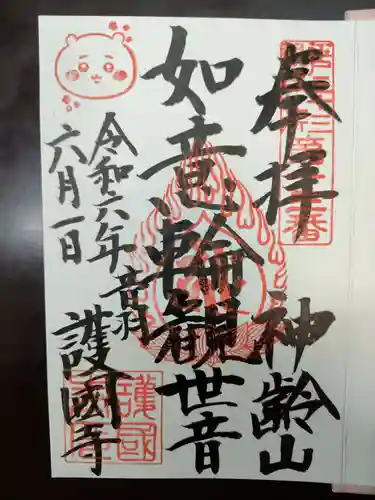 奉拝
神齢山
如意輪観世音
音羽
護國寺
令和六年
六月一日
護國